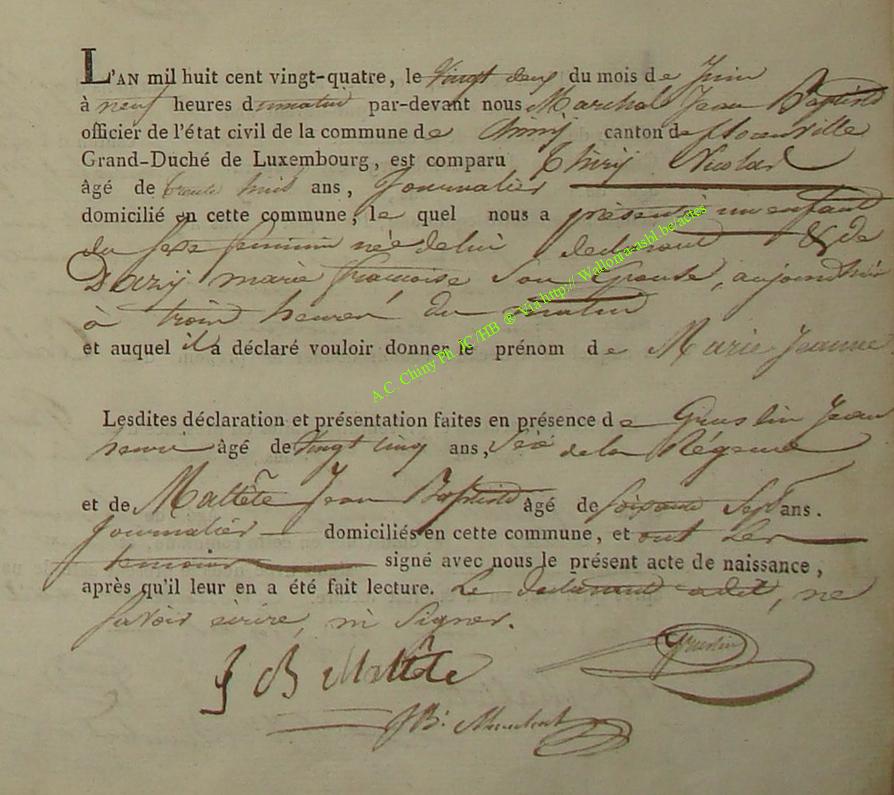 L'AN mil huit cent vingt-quatre, le vingt deux du mois de Juin
à neuf heures du matin par-devant nous Marchal Jean Baptiste
officier de l'état civil de la commune de Chiny canton de florenville
Grand-Duché de Luxembourg, est comparu Thiry Nicolas
âgé de trente huit ans, Journalier
domicilié en cette commune, le quel nous a présenté un enfant
du sexe feminin née de lui déclarant & de
marie françoise Son Epouse, aujourd'hui
à trois heures du matin
et auquel il a déclaré vouloir donner le prénom de Marie Jeanne
Lesdites déclaration et présentation faites en présence de Gruslin Jean
henri âgé de vingt cinq ans, de la Régence
et de Maltête Jean Baptiste âgé de soixante Sept ans.
Journalier domiciliés en cette commune, et ont les
temoins signé avec nous le présent acte de naissance,
après qu'il leur en a été fait lecture. Le déclarant a dit, ne
savoir écrire, ni Signer.
Gruslin
J B Maltête
JB. Marchal
A.C. Chiny Ph. JC /HB @ Via http:// Wallonia-asbl.be/actes